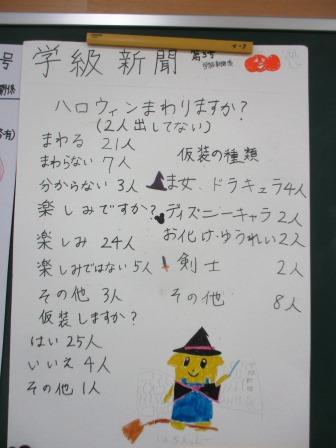 学級新聞 第3号
学級新聞係
ハロウィンまわりますか?
(2人出してない)
まわる 21人
まわらない 7人
分からない 3人
楽しみですか?
楽しみ 24人
楽しみではない 5人
その他 3人
仮装しますか?
はい 25人
いいえ 4人
その他 1人
仮装の種類
ま女、ドラキュラ 4人
ディズニーキャラ 2人
お化け・ゆうれい 2人
剣士 2人
その他 8人
号